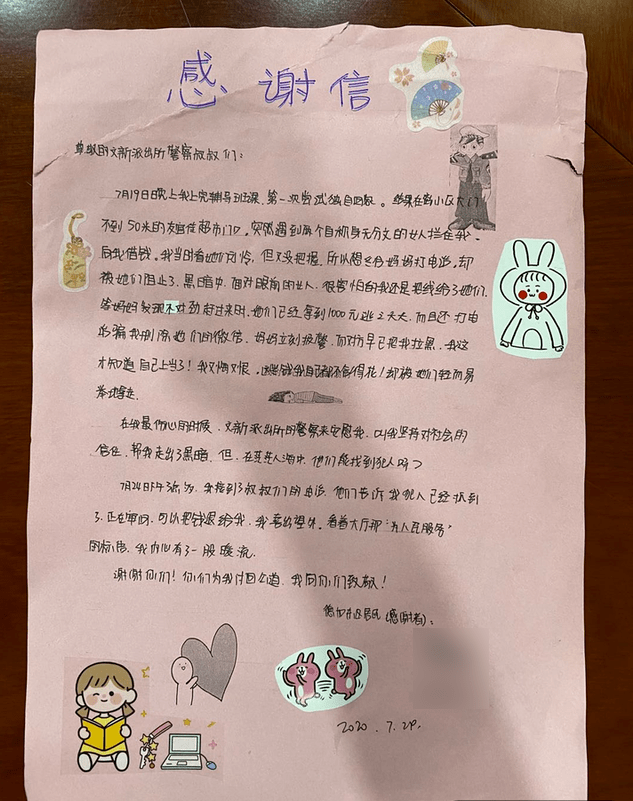 感谢信
尊敬的文新派出所警察叔叔们:
7月19日晚上我上完辅导班课,第一次尝试独自回家。结果在离小区大门
不到50米的友谊超市门口,突然遇到两个自称身无分文的女人拦住我,
向我借钱。我当时看她们可怜,但又没把握,所以想给妈妈打电话,却
被她们阻止了。黑暗中,面对眼前的女人,很害怕的我还是把钱给了她们。
等妈妈发现不对劲赶过来时,她们已经拿到1000元逃之夭夭,而且还打电
话骗我删除她们的微信。妈妈立刻报警,而对方早已把我拉黑。我这
才知道自己上当了!我又悔又恨。这些钱我自己都不舍得花!却被她们轻而易
举地骗走。
在我最伤心的时候,文新派出所的警察来安慰我,叫我坚持对社会的
信任,帮我走出了黑暗。但,在茫茫人海中,他们能找到犯人吗?
7月24日下午,我接到了叔叔们的电话,他们告诉我犯人已经抓到
了,正在审问,可以把钱退给我,我喜出望外。看着大厅那“为人民服务”
的标语,我内心有了一股暖流。
谢谢你们!你们为我讨回公道,我向你们致敬!
社区居民(感谢者):
2020.7.29.